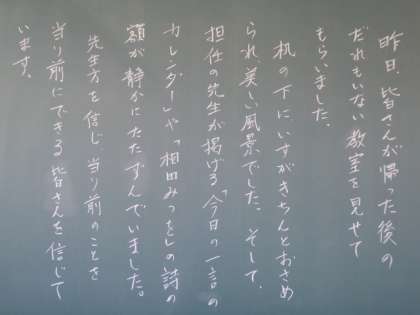 昨日、皆さんが帰った後の
だれもいない教室を見せて
もらいました。
机の下にいすがきちんとおさめ
られ、美しい風景でした。そして、
担任の先生が掲げる「今日の一言の
カレンダー」や「相田みつを」の詩の
額が静かにたたずんでいました。
先生方を信じ、当り前のことを
当り前にできる皆さんを信じて
います。